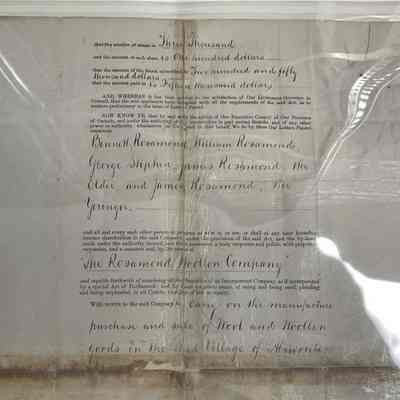 that the number of shares is Three Thousand
and the amount of each share is One hundred dollars
that the amount of the Stock subscribed is Two hundred and fifty
thousand dollars
that the amount paid in is Fifteen thousand dollars
AND WHEREAS it has been made to the satisfaction of Our Lieutenant-Governor in
Council, that the said applicants have complied with all the requirements of the said Act, as to
matters preliminary to the issue of Letters Patent:
NOW KNOW YE, that by and with the advice of Our Executive Council of Our Province
of Ontario, and under the authority of the
power or authority whatsoever in Us vested in that behalf, We do by these Our Letters Patent
constitute
Bennett Rosamond, William Rosamond,
George Stephen, James Rosamond, the
Elder, and James Rosamond, the
Younger,
and all and every such other person or persons as now is, or are, or shall at any time
under the provisions of the said Act, and the by-laws
made under the authority thereof, a body corporate and politic, with perpetual
succession, and a common seal, by the name of
"The Rosamond Woollen Company"
and capable forthwith of exercising all the functions of an Incorporated Company, as if incorporated
by a special Act of Parliament and by their corporate name, of suing and being sued, pleading
and being impleaded, in all Courts,
With power to the said Company to Carry on the manufacture
purchase and sale of Wool and Woollen
Goods in the said Village of Almonte